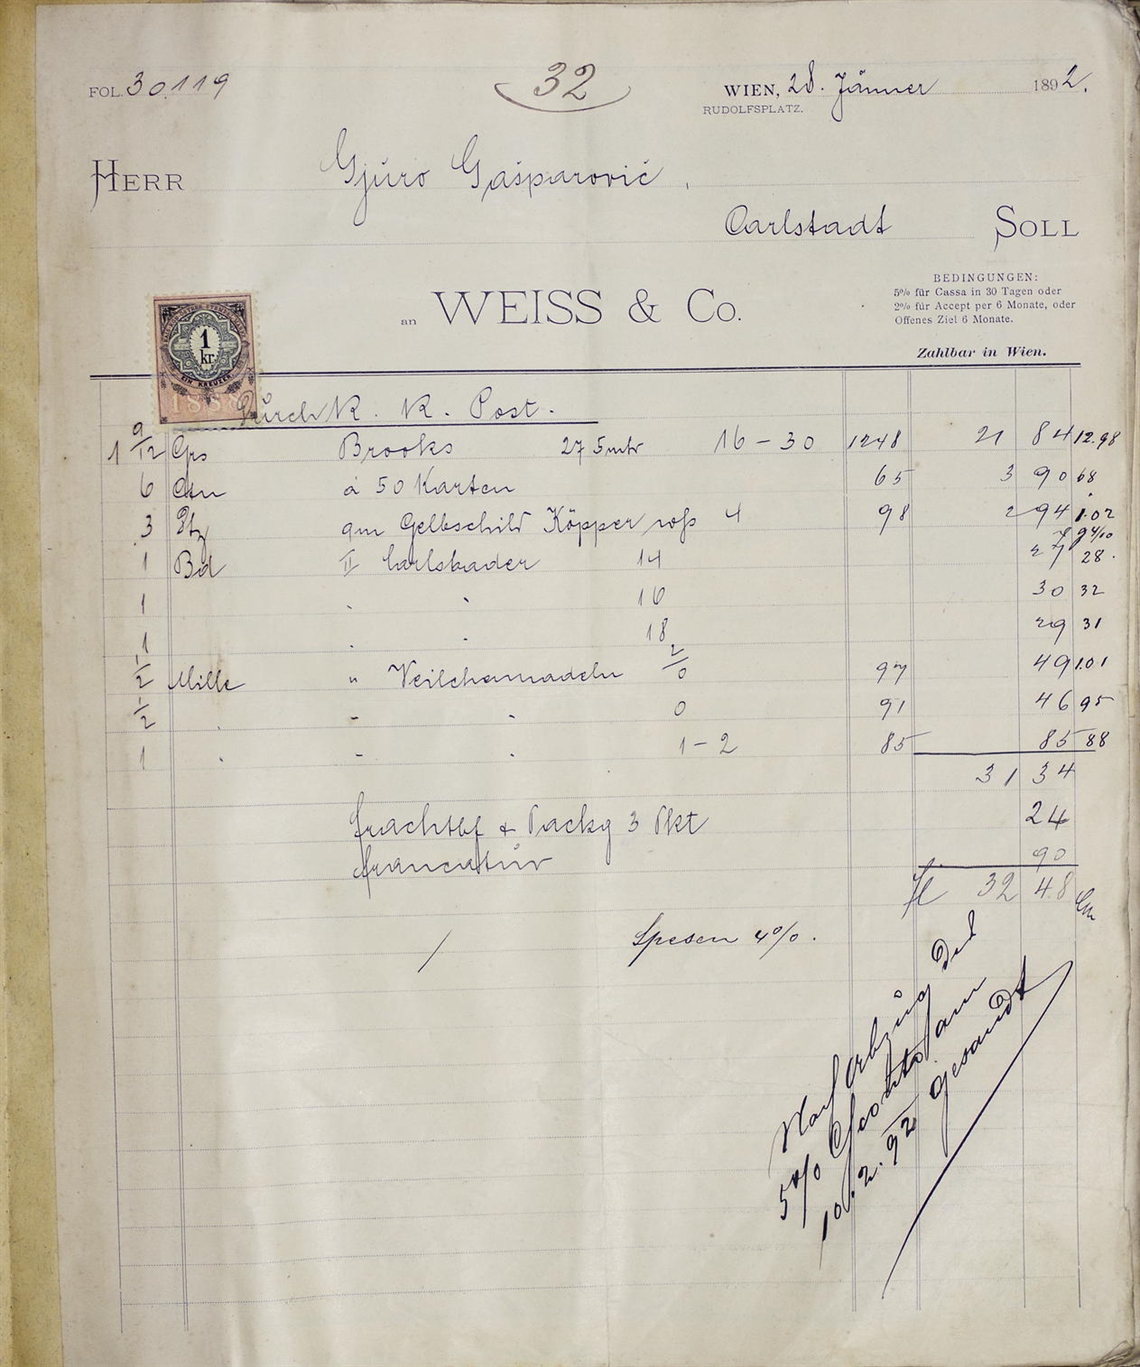 FOL. 30.119 32 WIEN, 28. Jänner 1892.
RUDOLFSPLATZ.
HERR Gjuro Gašparović,
Carlstadt SOLL
BEDINGUNGEN:
5% für Cassa in 30 Tagen oder
2% für Accept per 6 Monate, oder
Offenes Ziel 6 Monate.
an WEISS & Co.
Zahlbar in Wien.
1 kr.
EIN KREUZER
Durch K. K. Post.
1 9/12 Grs Brooks 27 5mtr 16-30 1248 21 84 12.98
6 à 50 Karten 65 3 90 68
3 Gelbschild Köpper 4 98 2 94 1.02
1 Bd II Carlsbader 14 27 28.
1 " " 16 30 32
1 " " 18 29 31
1/2 Mille " 2/0 97 49 1.01
1/2 " " " 0 91 46 95
1 " " " 1-2 85 85 88
31 34
Frachtbf & Packg 3 Pkt 24
Francatur 90
fl 32 48
Spesen 4%.
Abzug
5% Sconto am
10.2.92 gesandt